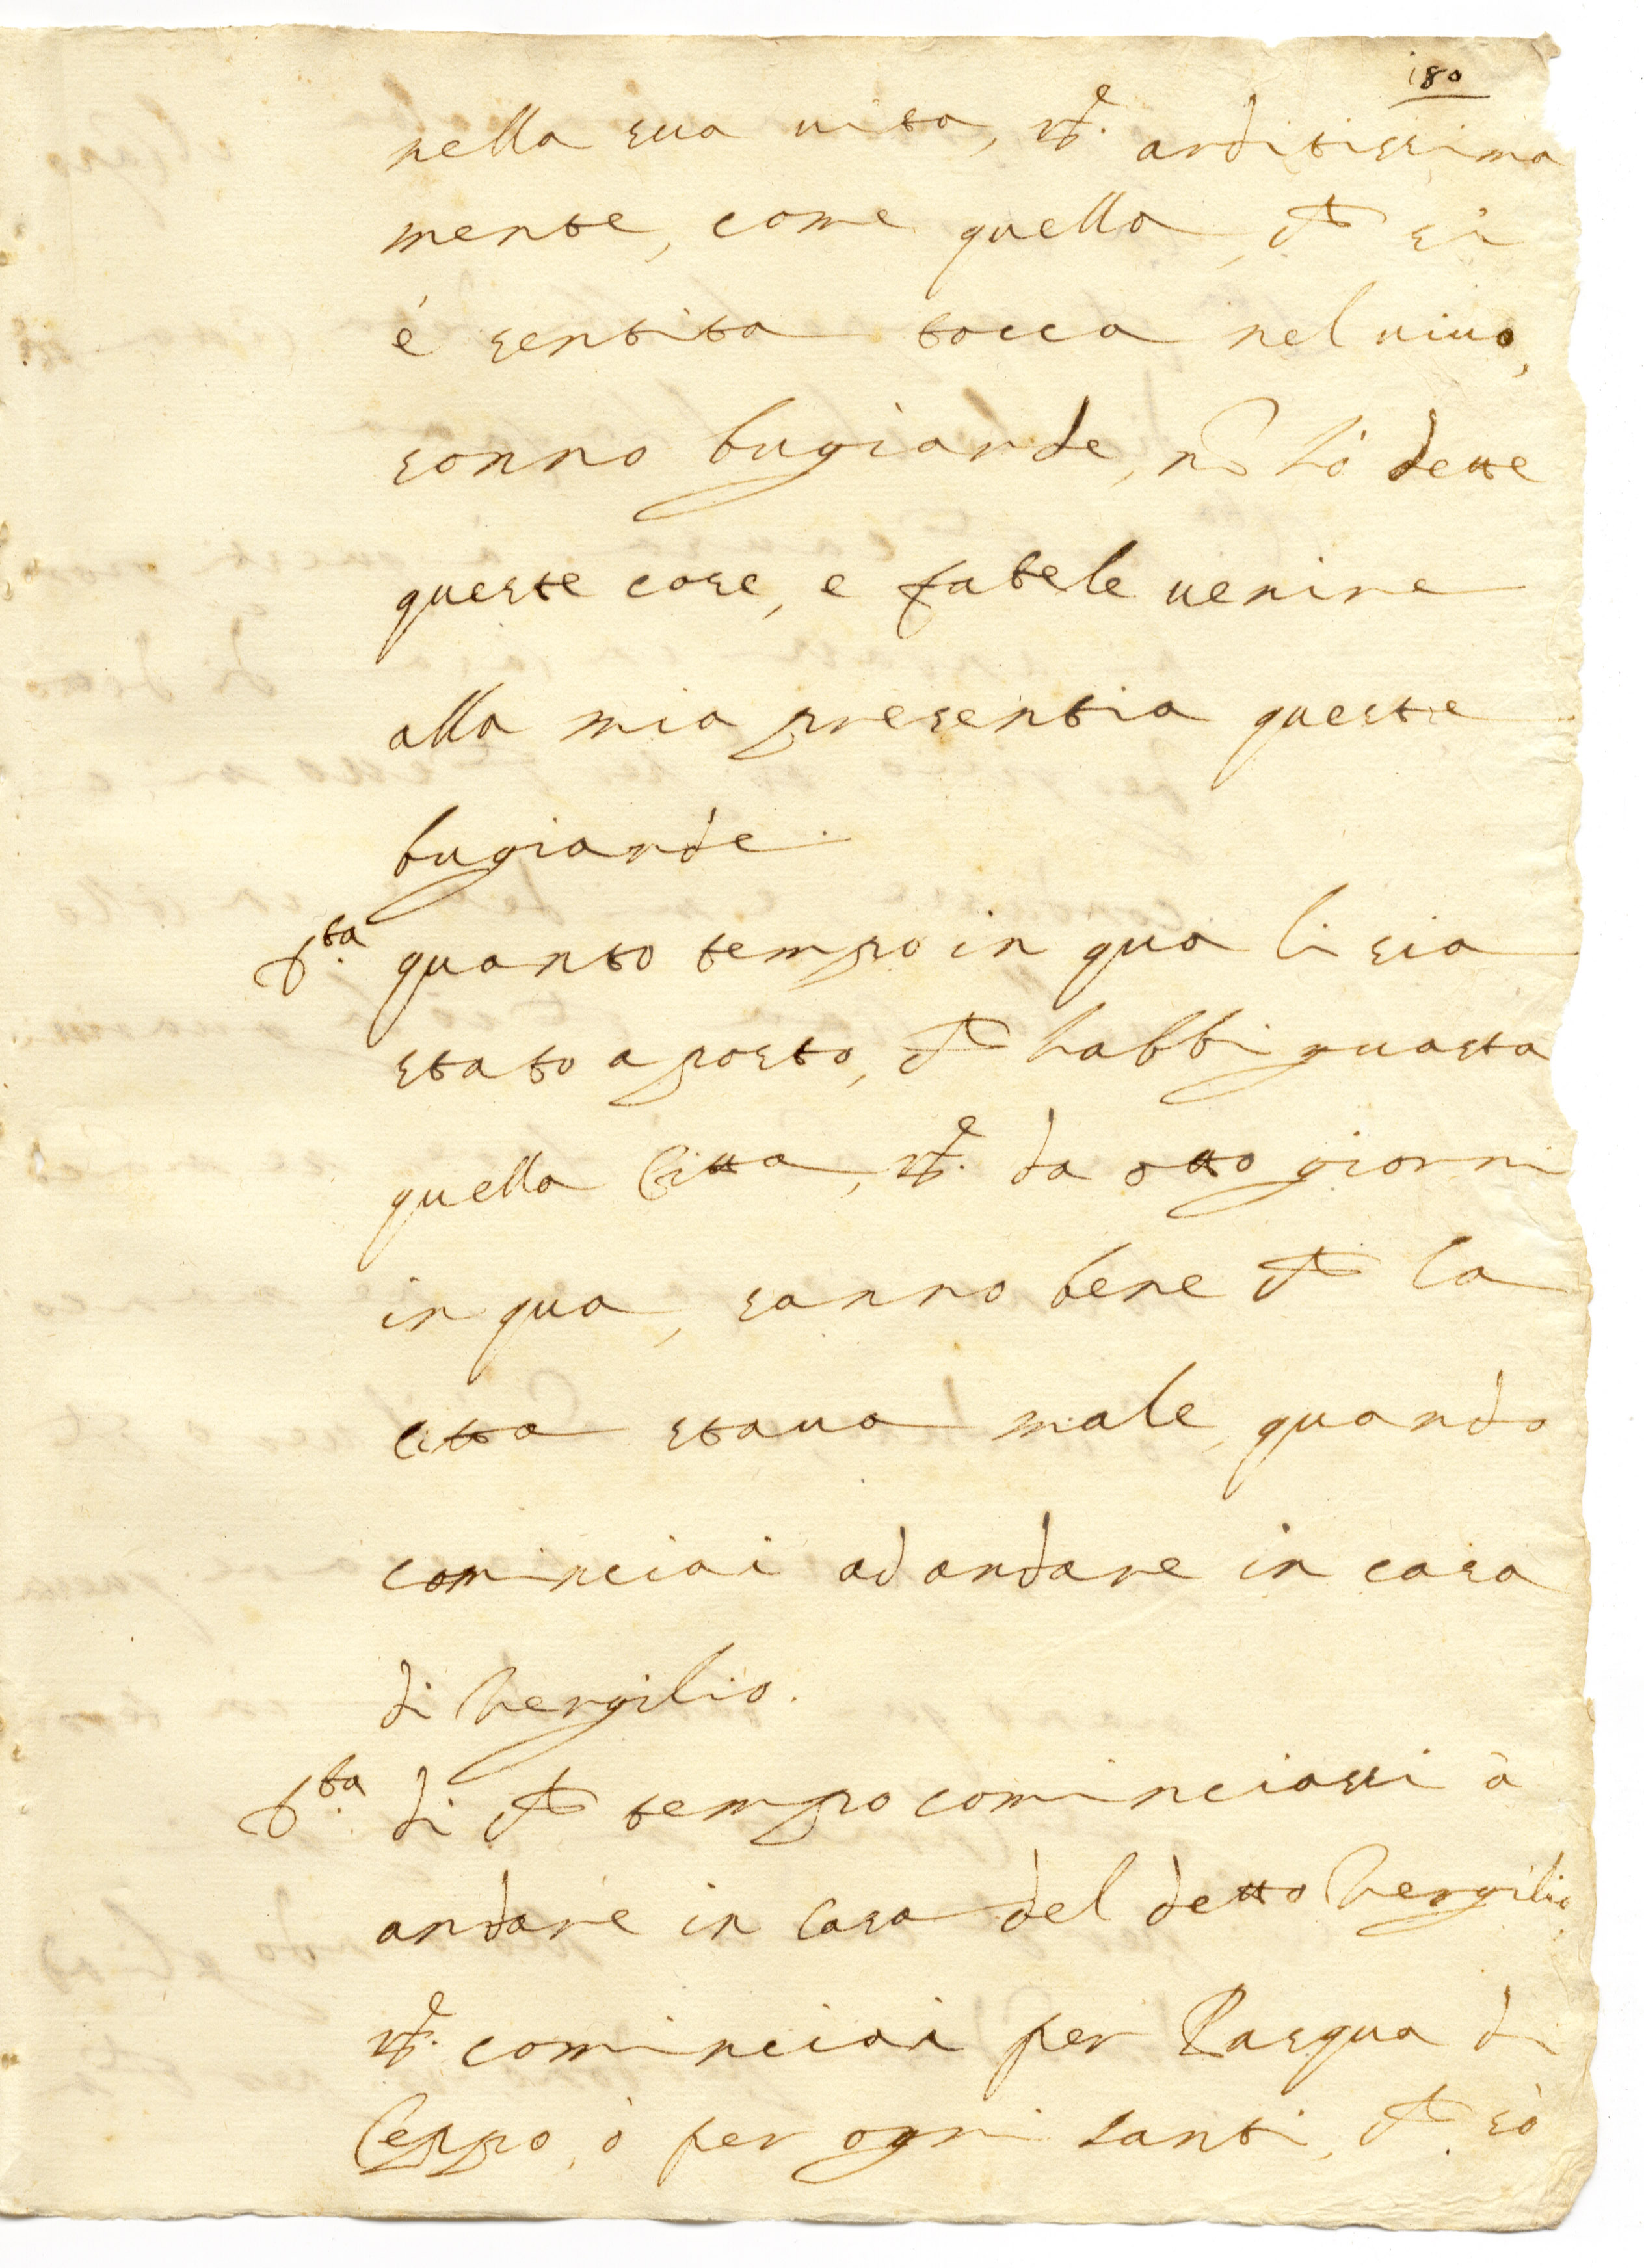 180
nella sua uita, r̃e. arditissima
mente, come quella, ch̃ si
é sentita tocca nel uiuo,
sonno bugiarde, nõ hò dette
queste cose, e fatele uenire
alla mia presentia queste
bugiarde.
Jta. quanto tempo in qua li sia
stato aposto, ch̃ habbi guasta
quella Citta, r̃e. da otto giorni
in qua, sanno bene ch̃ la
citta staua male, quando
cominciai ad andare in casa
di Vergilio.
Jta. di ch̃ tempo cominciassi à
andare in Casa del detto Vergilio
r̃e. cominciai per Pasqua di
Ceppo, ò per ogni santi, ch̃ sò